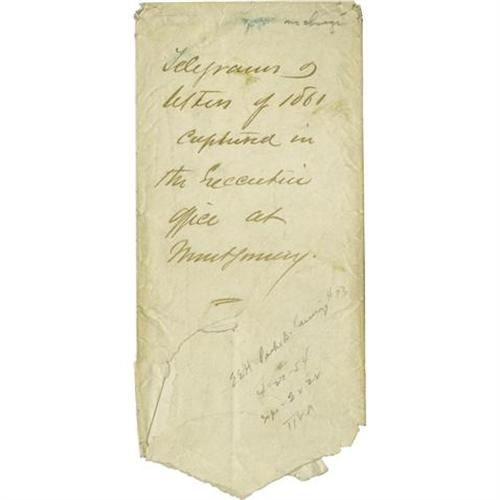 no charge
Telegrams &
letters of 1861
captured in
the Executive
office at
Montgomery.
4-22-54